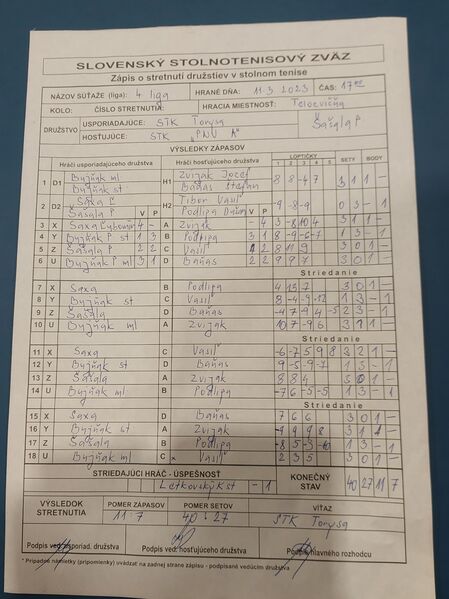 SLOVENSKÝ STOLNOTENISOVÝ ZVÄZ
Zápis o stretnutí družstiev v stolnom tenise
NÁZOV SÚŤAŽE (liga): 4 liga HRANÉ DŇA: 11.3 2023 ČAS: 17
KOLO: ČÍSLO STRETNUTIA: HRACIA MIESTNOSŤ: Telocvičňa
DRUŽSTVO USPORIADAJÚCE: STK Torysa Šašala P
HOSŤUJÚCE: STK
VÝSLEDKY ZÁPASOV
Hráči usporiadajúceho družstva Hráči hosťujúceho družstva LOPTIČKY SETY BODY
1 2 3 4 5
1 D1 Bujňák ml H1 Zvijak Jozef 8 8 -4 7 3 1 1 –
Bujňák st Baňas Štefan
2 D2 Saxa H2 Tibor Vasiľ -9 -8 -9 0 3 – 1
Šašala P V P Podlipa V P
3 X Saxa 4 – A Zvijak – 4 3 -8 10 4 3 1 1 –
4 Y Bujňák P st 1 3 B Podlipa 3 1 8 -9 -6 -7 1 3 – 1
5 Z Šašala P 2 2 C Vasiľ 2 2 8 11 9 3 0 1 –
6 U Bujňák P ml 3 1 D Baňas 2 2 9 9 7 3 0 1 –
Striedanie
7 X Saxa B Podlipa 4 15 7 3 0 1 –
8 Y Bujňák st C Vasiľ 8 -4 -9 -12 1 3 – 1
9 Z Šašala D Baňas -4 7 9 4 -5 2 3 – 1
10 U Bujňák ml A Zvijak 10 7 -9 6 3 1 1 –
Striedanie
11 X Saxa C Vasiľ -6 -7 5 9 8 3 2 1 –
12 Y Bujňák st D Baňas 9 -5 -9 -7 1 3 – 1
13 Z Šašala A Zvijak 8 8 4 3 0 1 –
14 U Bujňák ml B Podlipa -7 6 -5 -5 1 3 – 1
Striedanie
15 X Saxa D Baňas 7 6 6 3 0 1 –
16 Y Bujňák st A Zvijak -9 9 9 8 3 1 1 –
17 Z Šašala B Podlipa -8 5 -3 -10 1 3 – 1
18 U Bujňák ml C Vasiľ 2 3 5 3 0 1 –
STRIEDAJÚCI HRÁČ - ÚSPEŠNOSŤ KONEČNÝ STAV 40 27 11 7
Letkovský K st – 1
VÝSLEDOK STRETNUTIA POMER ZÁPASOV POMER SETOV VÍŤAZ
11 : 7 40 : 27 STK Torysa
Podpis ved. usporiad. družstva Podpis ved. hosťujúceho družstva Podpis hlavného rozhodcu
* Prípadné námietky (pripomienky) uvádzať na zadnej strane zápisu - podpísané vedúcim družstva